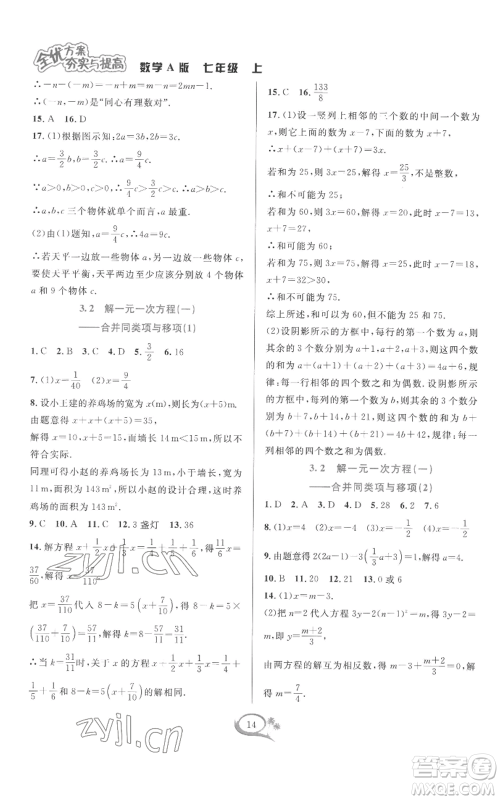 全优方案
夯实与提高
数学A版 七年级 上
∴-(n-m)=-n+m=2mn-1.
∴(-n,-m)是“同心有理数对”.
15. A 16. D
17. (1)根据图示知:2a=3b,2b=3c.
∴a=3/2b,b=3/2c.∴a=9/4c.
∵a>0,b>0,c>0,∴9/4c>3/2c.
∴a>b>c.
∴a,b,c三个物体就单个而言,a最重.
(2)由(1)知,a=9/4c,∴4a=9c.
若天平一边放一些物体a,另一边放一些物体c,
要使天平平衡,天平两边至少应该分别放4个物体
a和9个物体c.
3. 2 解一元一次方程(一)
——合并同类项与移项(1)
1. C 2. B 3. D 4. C 5. 3/2 6. 16
7. (1)x=1/40 (2)x=9
8. 设小王建的养鸡场的宽为x m,长为(x+5)m.
由题意得x+x+(x+5)=35,
解得x=10,∴x+5=15,15>14,不符合题意,所以不
符合实际.
同理可得小赵的养鸡场长为13 m,宽为11 m,符合
实际,面积为143 m².答:小赵的设计合理,这时养
鸡场的面积为143 m².
9. C 10. C 11. C 12. 3盏灯 13. 36
14. 解方程x+1/2x+1/3x=37/60,合并同类项得11/6x=
37/60,解得x=37/110.
把x=37/110代入8-k=5(x+7/10)得8-k=5×
(37/110+7/10),解得k=31/11.
∴当k=31/11时,关于x的方程x+1/2x+1/3x=37/60与
8-k=5(x+7/10)的解相同.
15. C 16. 133/8
17. (1)设一竖列上相邻的三个数的中间的一个数为
x,则它上面的数为x-7,下面的数为x+7;
∴x+(x-7)+(x+7)=3x.
若和为25,则3x=25,解得x=25/3,不符合题意;
∴和不可能为25;
若和为54,则3x=54,解得x=18,符合题意;
∴和可能为54;
若和为75,则3x=75,解得x=25,
x+7=32,不符合题意;
∴和不可能为75.
综上所述,和可能为54,不可能为25和75.
(2)设阴影所示的方框中第一个数为a,则方框中
的另外3个数分别为a+1,a+7,a+8,则这四个数
的和为a+(a+1)+(a+7)+(a+8)=4(a+4).
∴这四个数的和为偶数;
设阴影所示的方框中第一个数为b,则如阴影所示
的方框中,其余3个数分别为b+7,b+6,b+
13;则这四个数的和为b+(b+7)+(b+6)+(b+
13)=4b+26=2(2b+13),故这四个数之和为偶数.
综上所述,这四个数之和为偶数.
3. 2 解一元一次方程(一)
——合并同类项与移项(2)
1. D 2. A 3. D 4. D 5. D 6. 2 7. 0
8. (1)x=4 (2)x=1/2
9. 由题意得2(2a-3)-(1/3a+1)=4,解得a=3.
10. B 11. 20 12. 21 13. 0或6
14. (1)x=3.
(2)把n=2代入方程3y-3=m-1得y=(m+2)/3.
由两方程的解互为相反数,得m-3+(m+2)/3=0,
解得m=7/4.
14
zyjl.cn
zyjl.cn
答案圈